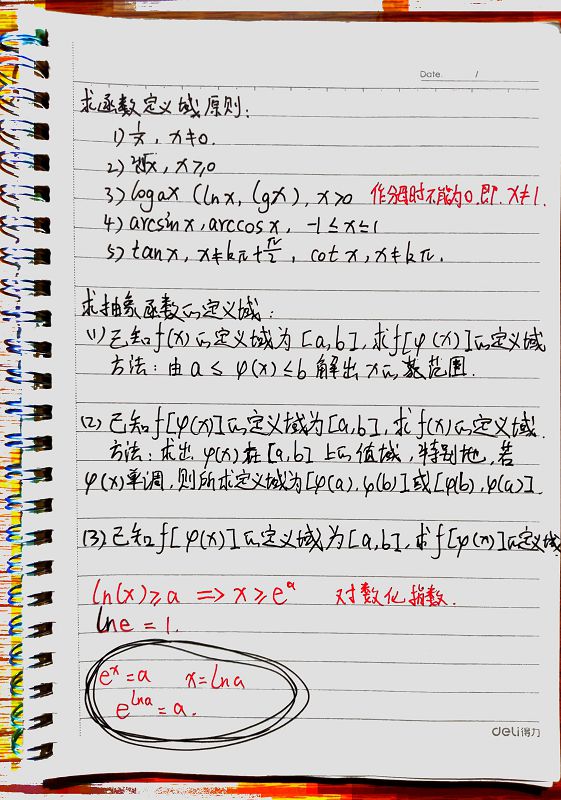 Date. /
求函数定义域原则:
1) 1/x, x≠0.
2) ²ⁿ√x, x≥0
3) logax (lnx, lgx), x>0 作分母时不能为0.即 x≠1.
4) arcsinx, arccosx, -1≤x≤1
5) tanx, x≠kπ+π/2, cotx, x≠kπ.
求抽象函数的定义域:
(1) 已知f(x)的定义域为[a,b], 求f[φ(x)]的定义域
方法: 由a≤φ(x)≤b解出x的范围.
(2) 已知f[φ(x)]的定义域为[a,b], 求f(x)的定义域.
方法: 求出φ(x)在[a,b]上的值域, 特别地, 若
φ(x)单调, 则所求定义域为[φ(a),φ(b)]或[φ(b),φ(a)].
(3) 已知f[φ(x)]的定义域为[a,b], 求f[ψ(x)]的定义域
ln(x)≥a ⇒ x≥eᵃ 对数化指数.
lne=1.
eˣ=a x=lna
e^lna=a.
deli得力